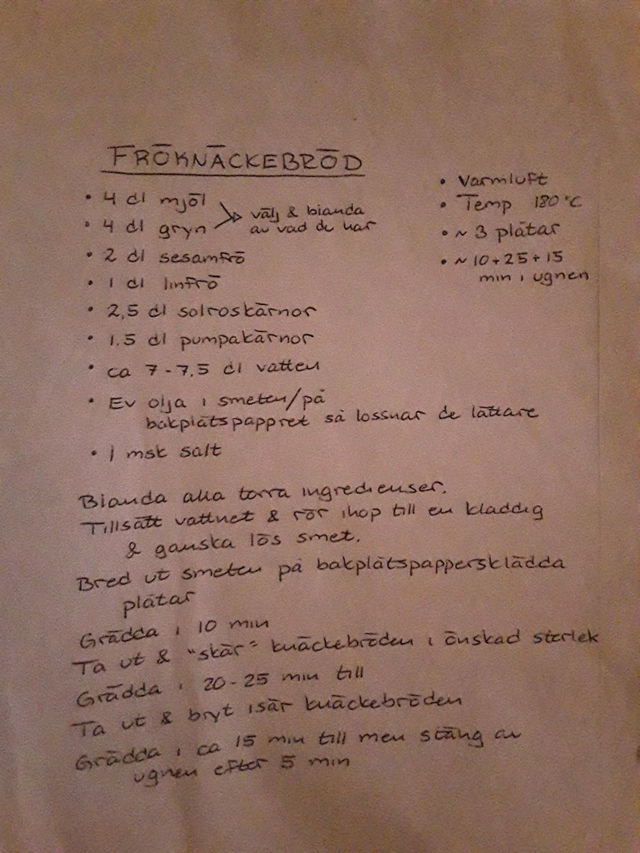 FRÖKNÄCKEBRÖD
• 4 dl mjöl
• 4 dl gryn
välj & blanda
av vad du har
• 2 dl sesamfrö
• 1 dl linfrö
• 2,5 dl solroskärnor
• 1,5 dl pumpakärnor
• ca 7-7,5 dl vatten
• Ev olja i smeten/på
bakplåtspappret så lossnar de lättare
• 1 msk salt
• Varmluft
• Temp 180°C
• ~ 3 plåtar
• ~ 10+25+15
min i ugnen
Blanda alla torra ingredienser.
Tillsätt vattnet & rör ihop till en kladdig
& ganska lös smet.
Bred ut smeten på bakplåtspappersklädda
plåtar
Grädda i 10 min
Ta ut & "skär" knäckebröden i önskad storlek
Grädda i 20-25 min till
Ta ut & bryt isär knäckebröden
Grädda i ca 15 min till men stäng av
ugnen efter 5 min